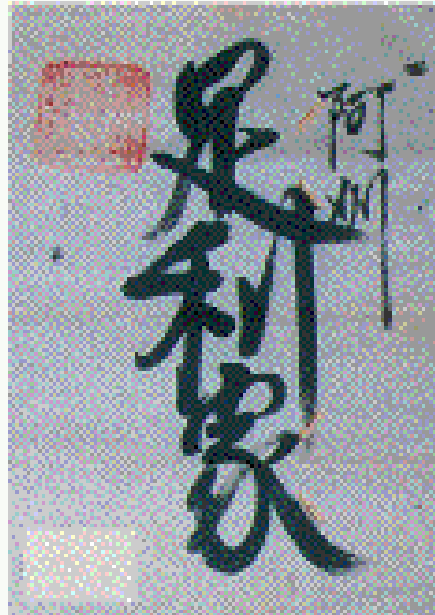 阿州
足利家